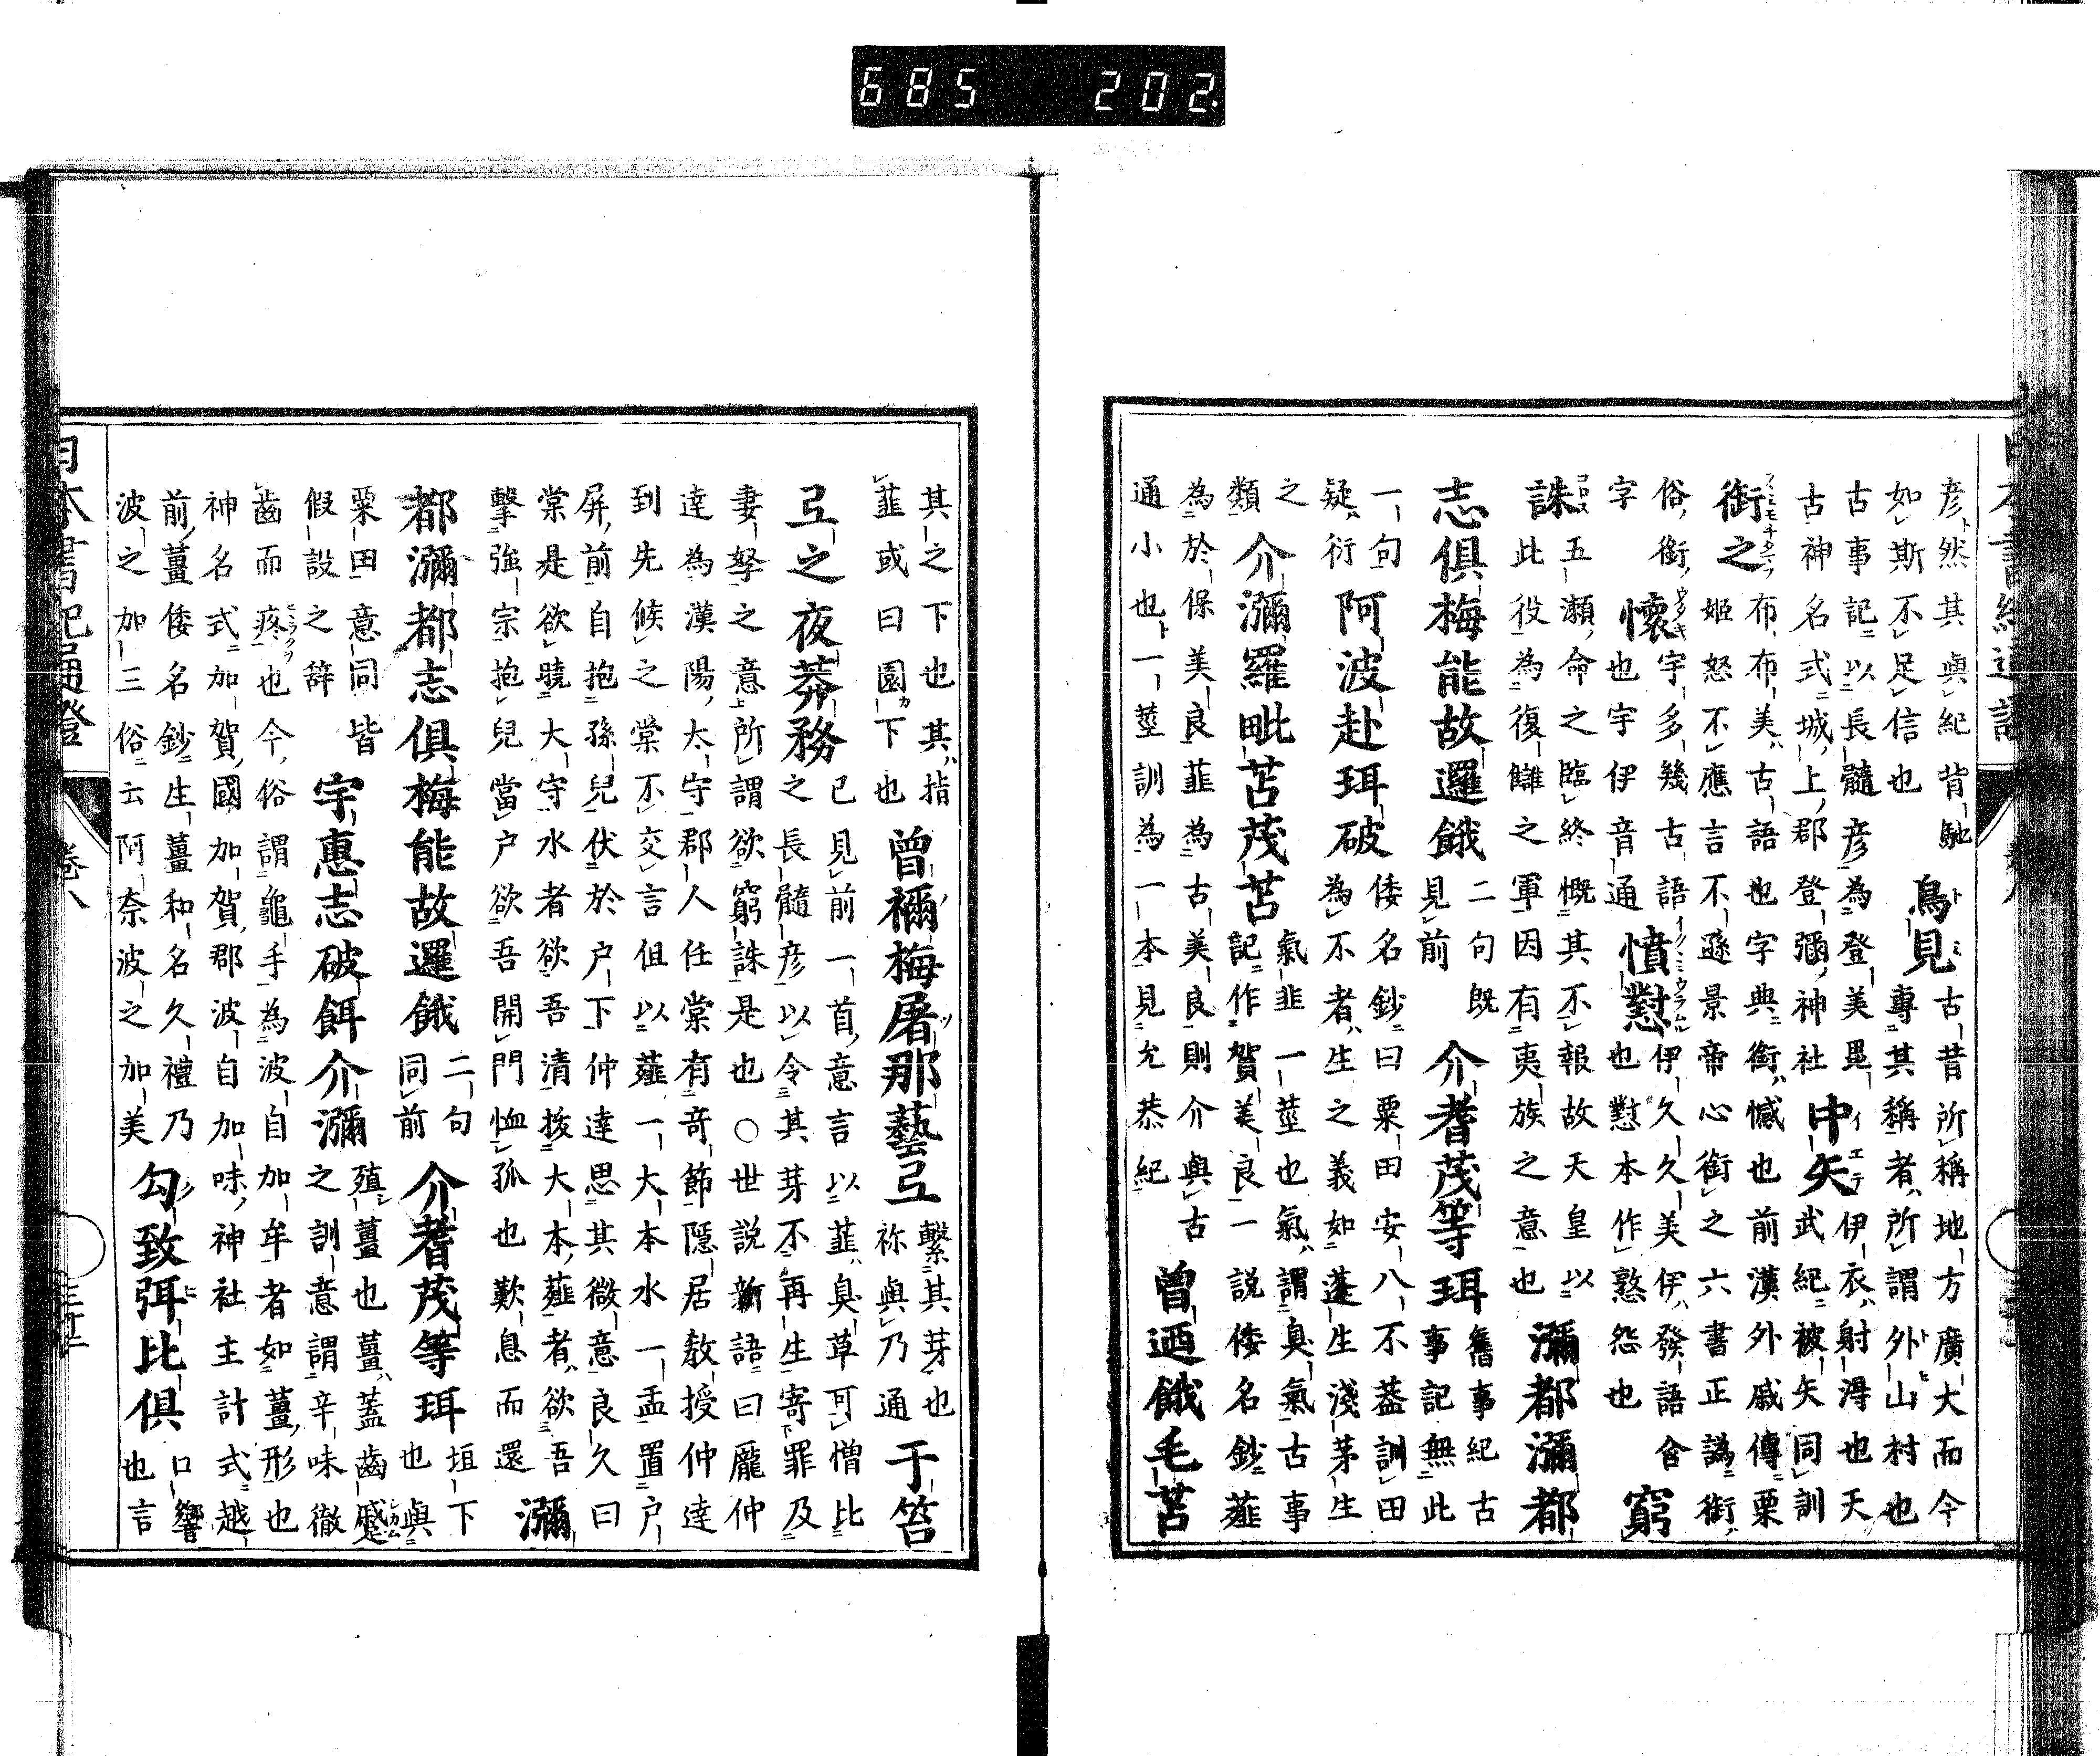 日本書紀通證
彦然其與紀背馳
如斯不足信也
鳥見
古昔所稱地方廣大而今
專其稱者所謂外山村也
古事記以長髓彦為登美毘
古神名式城上郡登彌神社
中矢
伊衣射淂也天
武紀被矢同訓
銜之
布布美古語也字典銜憾也前漢外戚傳栗
姬怒不應言不遜景帝心銜之六書正譌銜
俗銜
字
懷
宇多幾古語
也宇伊音通
憤懟
伊久久美伊發語含
也懟本作憝怨也
窮
誅
五瀬命之臨終慨其不報故天皇以
此役為復讎之軍因有夷族之意也
瀰都瀰都
志倶梅能故邏餓
二句既
見前
介耆茂等珥
舊事紀古
事記無此
一句
疑衍
阿波赴珥破
倭名鈔曰粟田安八不葢訓田
為不者生之義如蓬生淺茅生
之
類
介瀰羅毗苫茂苫
氣韮一莖也氣謂臭氣古事
記作賀美良一說倭名鈔薤
為於保美良韮為古美良則介與古
通小也一莖訓為一本見允恭紀
曾廼餓毛苫
其之下也其指
韮或曰園下也
曾禰梅屠那藝弖
繫其芽也
祢與乃通
于笞
弖之夜莽務
已見前一首意言以韮臭草可憎比
之長髓彦以令其芽不再生寄罪及
妻孥之意所謂欲窮誅是也○世說新語曰龐仲
達為漢陽太守郡人任棠有奇節隱居敎授仲達
到先候之棠不交言但以薤一大本水一盂置户
屏前自抱孫兒伏於户下仲達思其微意良久曰
棠是欲曉大守水者欲吾清拔大本薤者欲吾
擊強宗抱兒當户欲吾開門恤孤也歎息而還
瀰
都瀰都志倶梅能故邏餓
二句
同前
介耆茂等珥
垣下
也與
粟田意同皆
假設之辭
宇惠志破餌介瀰
殖薑也薑蓋齒蹙
之訓意謂辛味徹
齒而疼也今俗謂龜手為波自加牟者如薑形也
神名式加賀國加賀郡波自加味神社主計式越
前薑倭名鈔生薑和名久禮乃
波之加三俗云阿奈波之加美
勾致弭比倶
口響
也言
日本書紀通證
卷八
685 202